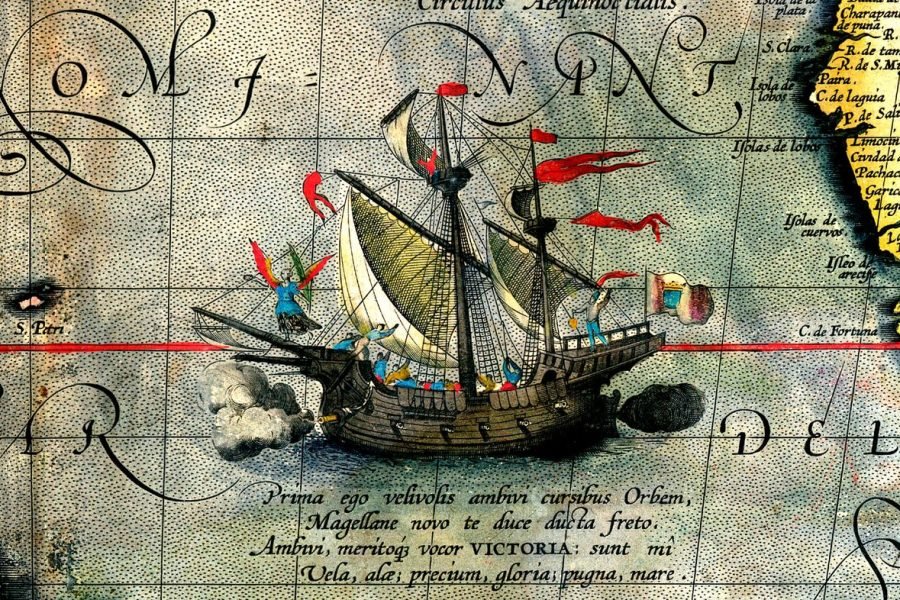 Circulus Aequinoctialis.
Iſola de la
plata.
Charapan
de puna
R.
S. Clara.
R. de tam
R. de S. Mi
Paira.
Iſola de
lobos
C. de laguia
P. de Sali
OMI-
NANT
Iſolas de lobos
Limocin
Cividad d
Pachac
Garic
Lag
Iſolas de
cuervos
Iſleo de
arecife
S. Petri.
C. de Fortuna
IR
DEL
Prima ego velivolis ambivi cursibus Orbem,
Magellane novo te duce ducta freto.
Ambivi, meritoq́ꝫ vocor VICTORIA: sunt mî
Vela, alæ; precium, gloria; pugna, mare.